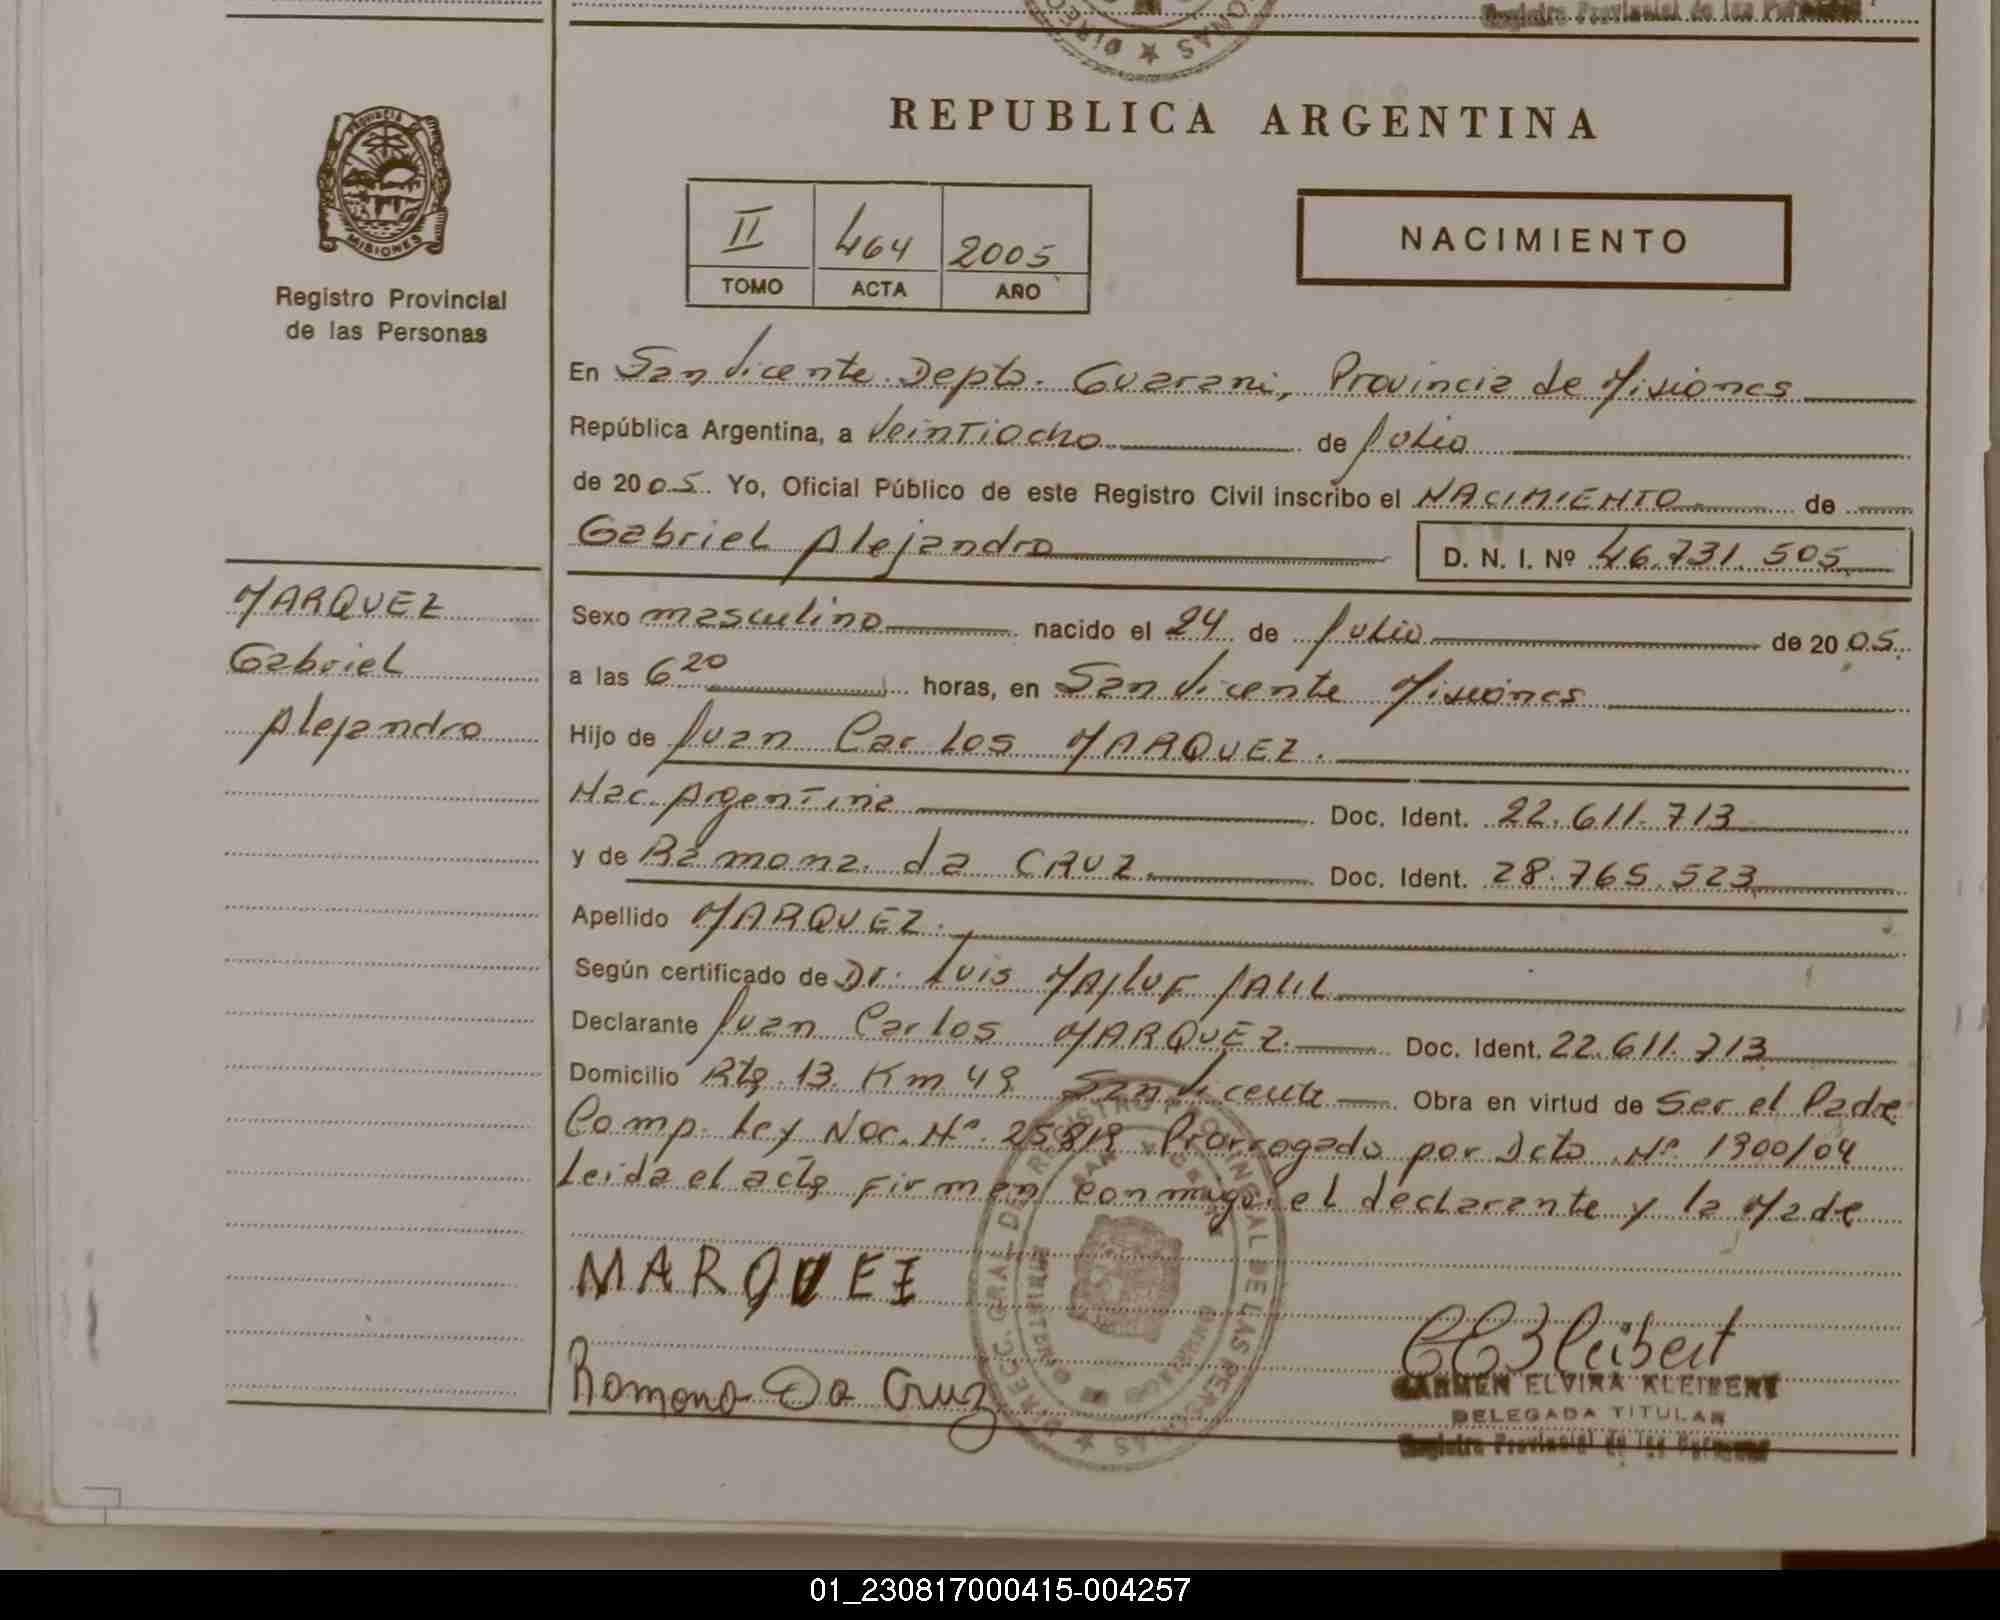 Registro Provincial de las Personas
REPUBLICA ARGENTINA
PROVINCIA
MISIONES
Registro Provincial
de las Personas
II 464 2005
TOMO ACTA AÑO
NACIMIENTO
En San Vicente Depto. Guarani, Provincia de Misiones
República Argentina, a Veintiocho de Julio
de 2005. Yo, Oficial Público de este Registro Civil inscribo el NACIMIENTO de
Gabriel Alejandro D. N. I. Nº 46.731.505
MARQUEZ
Gabriel
Alejandro
Sexo masculino nacido el 24 de Julio de 2005
a las 6 20 horas, en San Vicente Misiones
Hijo de Juan Carlos MARQUEZ.
Nac. Argentina Doc. Ident. 22.611.713
y de Ramona da CRUZ. Doc. Ident. 28.765.523
Apellido MARQUEZ.
Según certificado de Dr. Luis MAJLUF JALIL
Declarante Juan Carlos MARQUEZ. Doc. Ident. 22.611.713
Domicilio Rta. 13 Km 49 San Vicente Obra en virtud de Ser el Padre
Comp. Ley Nac. Nº 25819 Prorrogado por Dcto Nº 1900/04
Leida el acta Firman conmigo el declarante y la Made
MARQUEZ
Ramona Da Cruz
DIRECC. GRAL. DE REGISTRO PROVINCIAL DE LAS PERSONAS
CARMEN ELVIRA KLEIBERT
DELEGADA TITULAR
Registro Provincial de las Personas
01_230817000415-004257